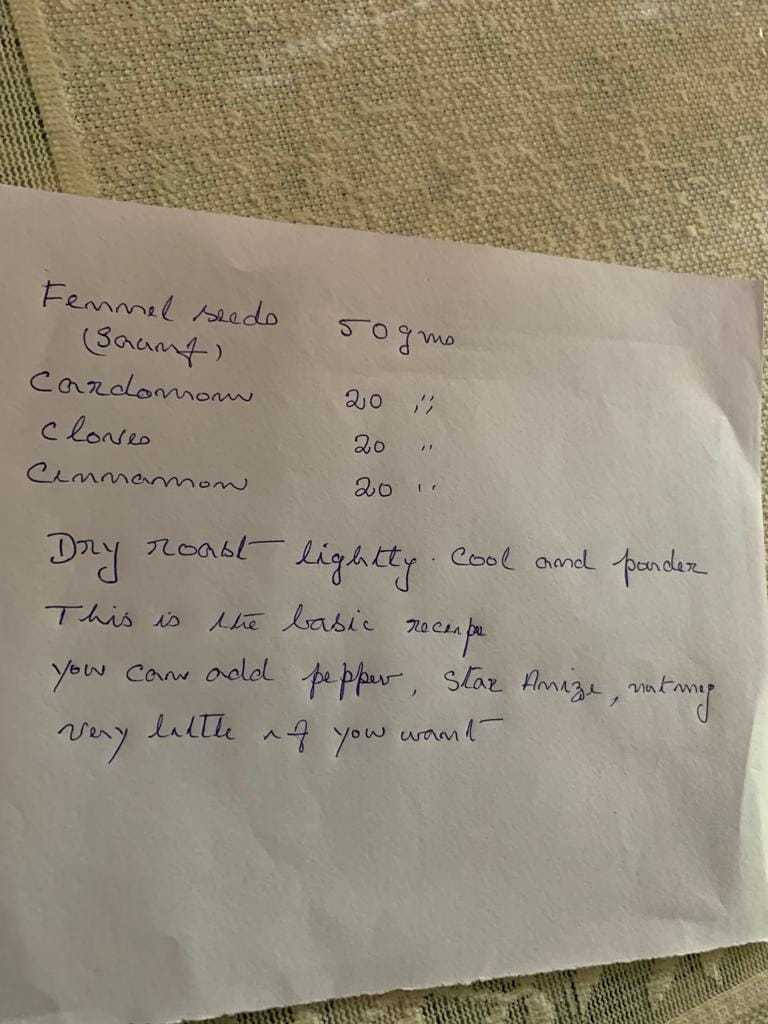 Fennel seeds 50 gms
(Saunf)
Cardomom 20 ;;
Cloves 20 "
Cinnamon 20 "
Dry roast lightly. Cool and powder
This is the basic recipe
you can add pepper, Star Anize, nutmeg
very little if you want